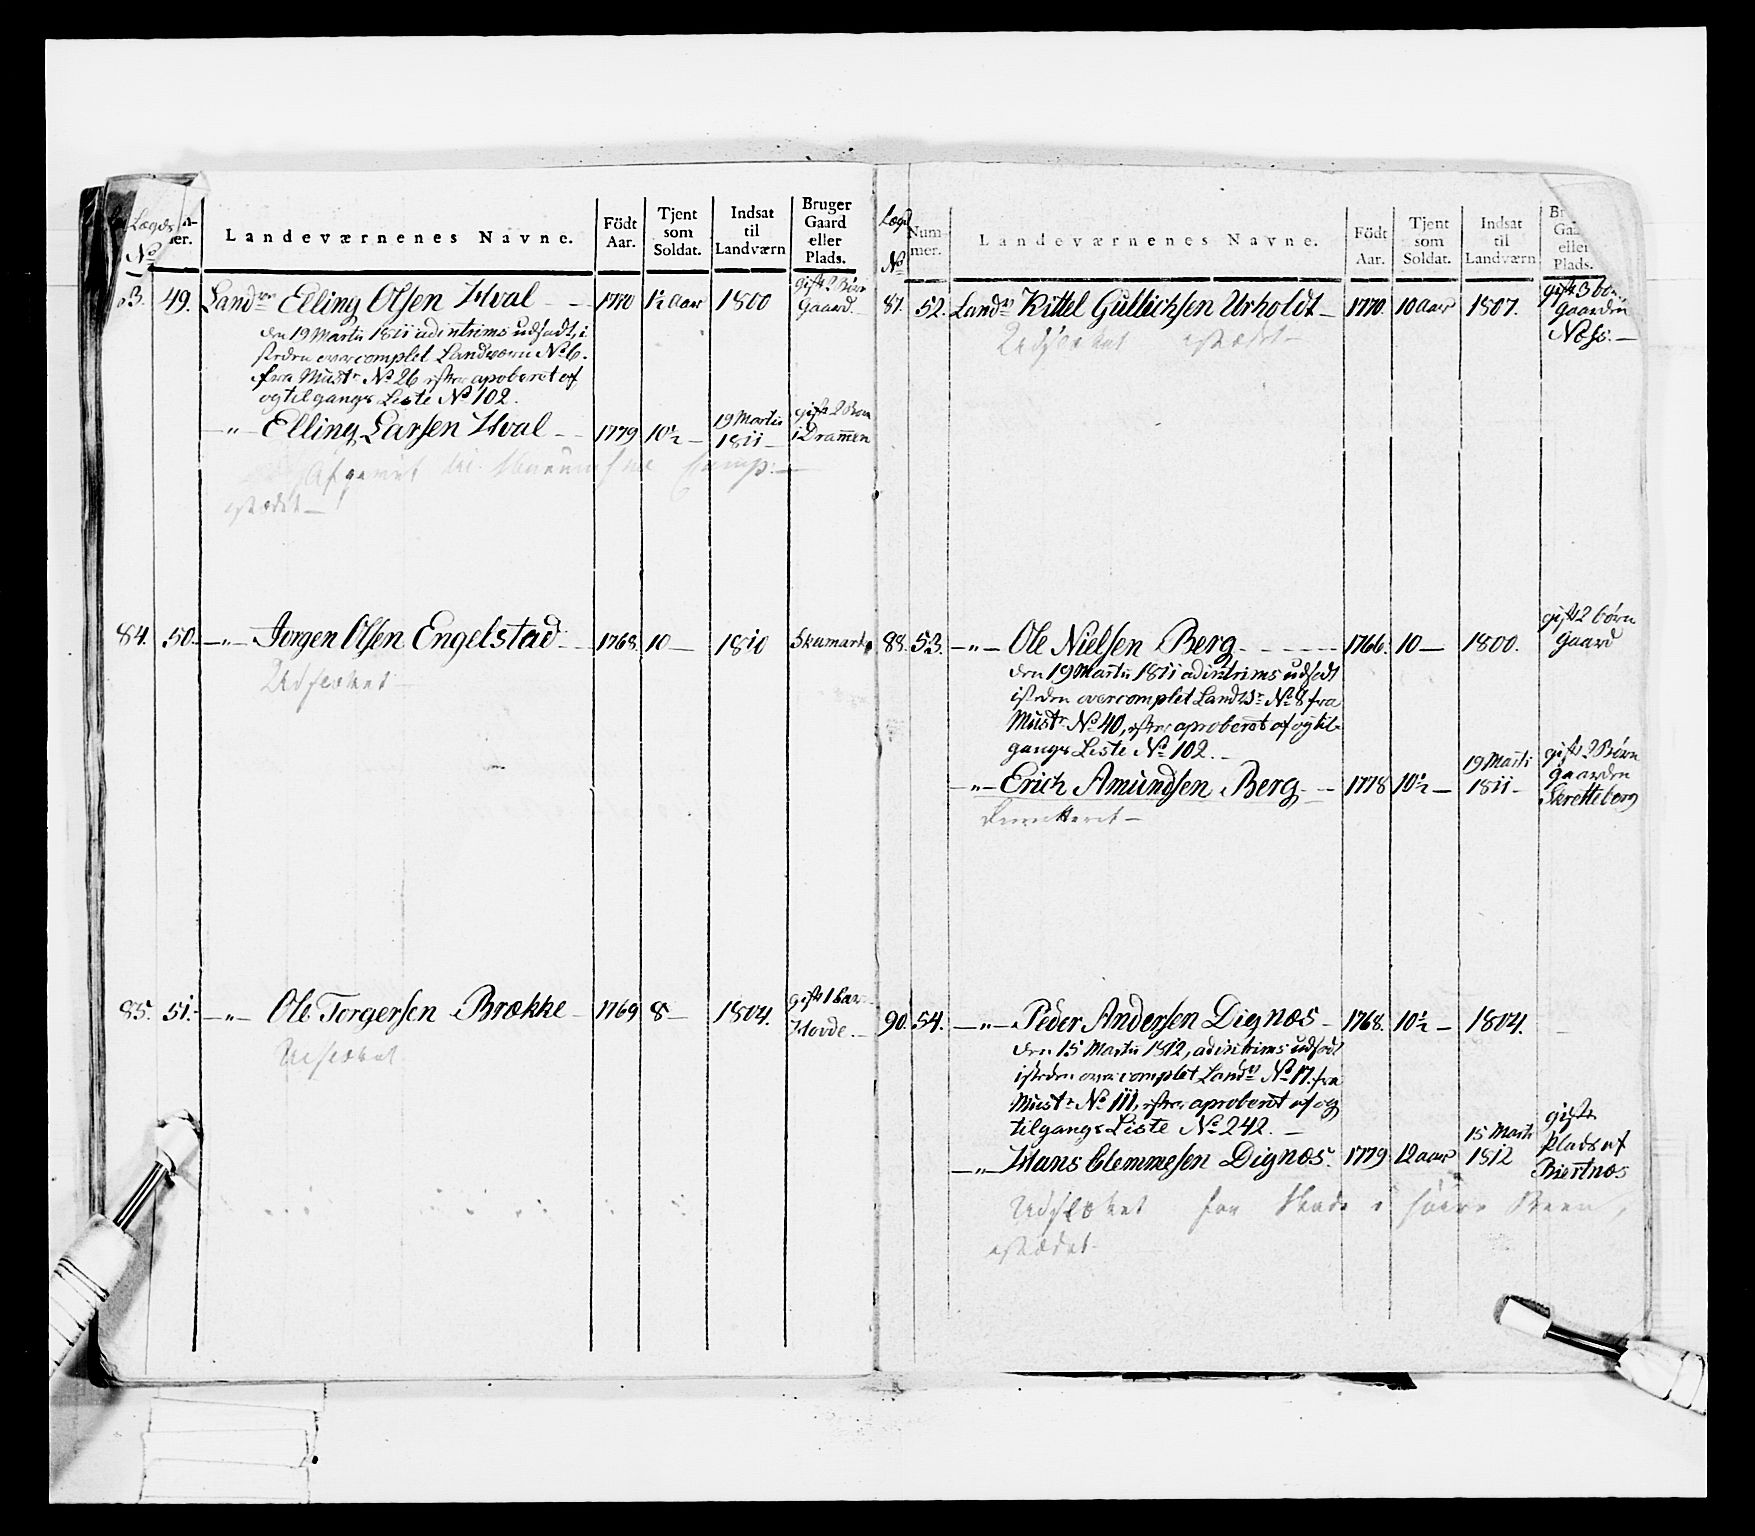 Lægds
No
er.
Landeværnenes Navne.
Födt
Aar.
Tjent
som
Soldat.
Indsat
til
Landværn
Bruger
Gaard
eller
Plads.
83. 49. Landvr Elling Olsen Hval - - 1770 1½ Aar 1800 gift 2 Börn
Gaard.
den 19 Martii 1811 ad intrims udsadt, i
steden overcomplet Landværn No 6.
fra Mustr No 26 efter aproberet af
og tilgangs Liste No 102.
-"- Elling Larsen Hval - - 1779 10½ - 19 Martii
1811 - gift 2 Born
i Drammen
Afgivet til Comp: -
84. 50. -"- Jørgen Olsen Engelstad - - 1768 10 - 1810
Udslettet -
85. 51. -"- Ole Torgersen Brække - 1769 8 - 1804. gift 1 barn
Hovde. -
Udslettet
Lægd
No
Num-
mer.
Landeværnenes Navne.
Födt
Aar.
Tjent
som
Soldat.
Indsat
til
Landværn
Br
Gaa
eller
Plads.
87. 52. Landv Kittel Gullichsen Urholdt - 1770. 10 aar 1807. gift 3 börn
Gaarden
Næss. -
88. 53. -"- Ole Nielsen Berg - - - - - 1766. 10 - 1800. gift 2 börn
Gaard
den 19 Martii 1811 ad intrims udsadt
isteden overcomplet Landvr No 8 fra
Mustr No 40, efter aproberet af og til-
gangs Liste No 102. -
-"- Erich Amundsen Berg - - 1778 10½ - 19 Marti
1811 - gift 2 Børn
Gaarden
Skretteberg
Dimitteret -
90. 54. -"- Peder Andersen Dignæs - 1768. 10½ - 1804.
den 15 Martii 1812, ad intrims udsadt
isteden overcomplet Landv No 17. fra
Mustr No 111, efter aproberet af og
tilgangs Liste No 242. -
-"- Hans Clemmesen Dignæs. 1779. 12 aar 15 Marti
1812 gift
Plads af
Biertnæs
Udslettet for Skade i høire Been,